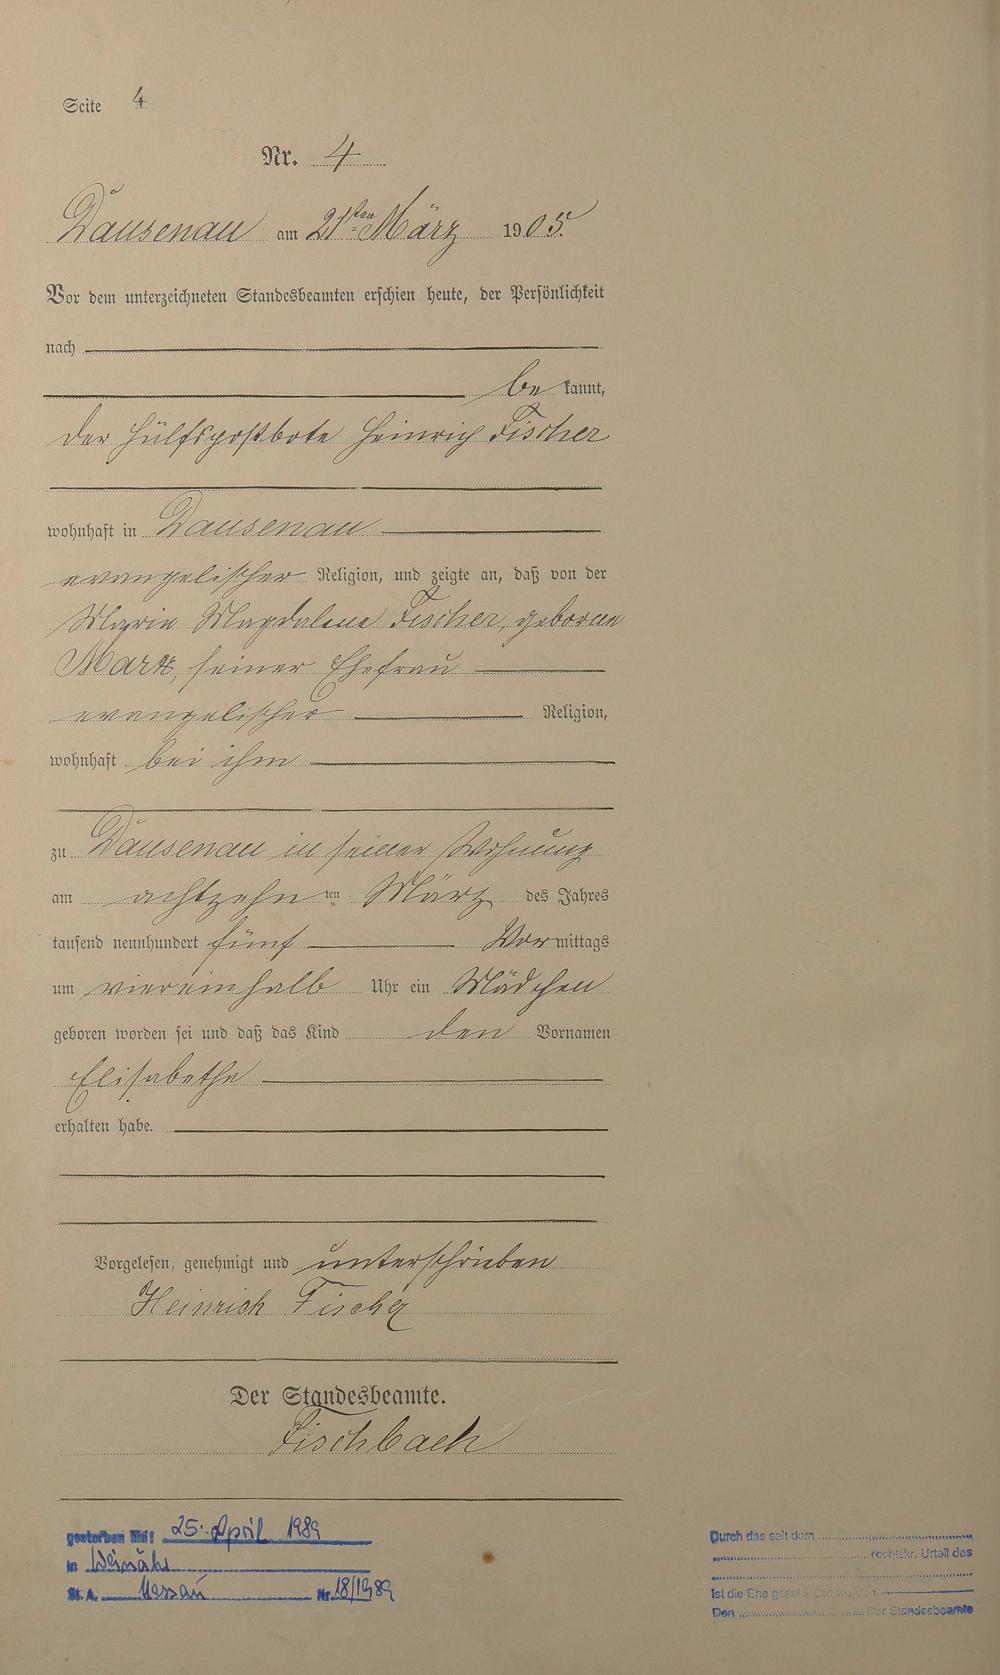 Seite 4
Nr. 4
Dausenau am 21ten März 1905.
Vor dem unterzeichneten Standesbeamten erschien heute, der Persönlichkeit
nach
be kannt,
der Hülfspostbote Heinrich Fischer
wohnhaft in Dausenau
evangelischer Religion, und zeigte an, daß von der
Maria Magdalena Fischer, geborene
seiner Ehefrau
evangelischer Religion,
wohnhaft bei ihm
zu Dausenau in seiner Wohnung
am achtzehn ten März des Jahres
tausend neunhundert fünf Vormittags
um viereinhalb Uhr ein Mädchen
geboren worden sei und daß das Kind den Vornamen
Elisabethe
erhalten habe.
Vorgelesen, genehmigt und unterschrieben
Heinrich Fischer
Der Standesbeamte.
Fischbach
gestorben am: 25. April 1989
in Weinähr
St. A. Nassau Nr. 18/1989
Durch das seit dem
rechtskr. Urteil des
ist die Ehe geschieden worden.
Den Der Standesbeamte